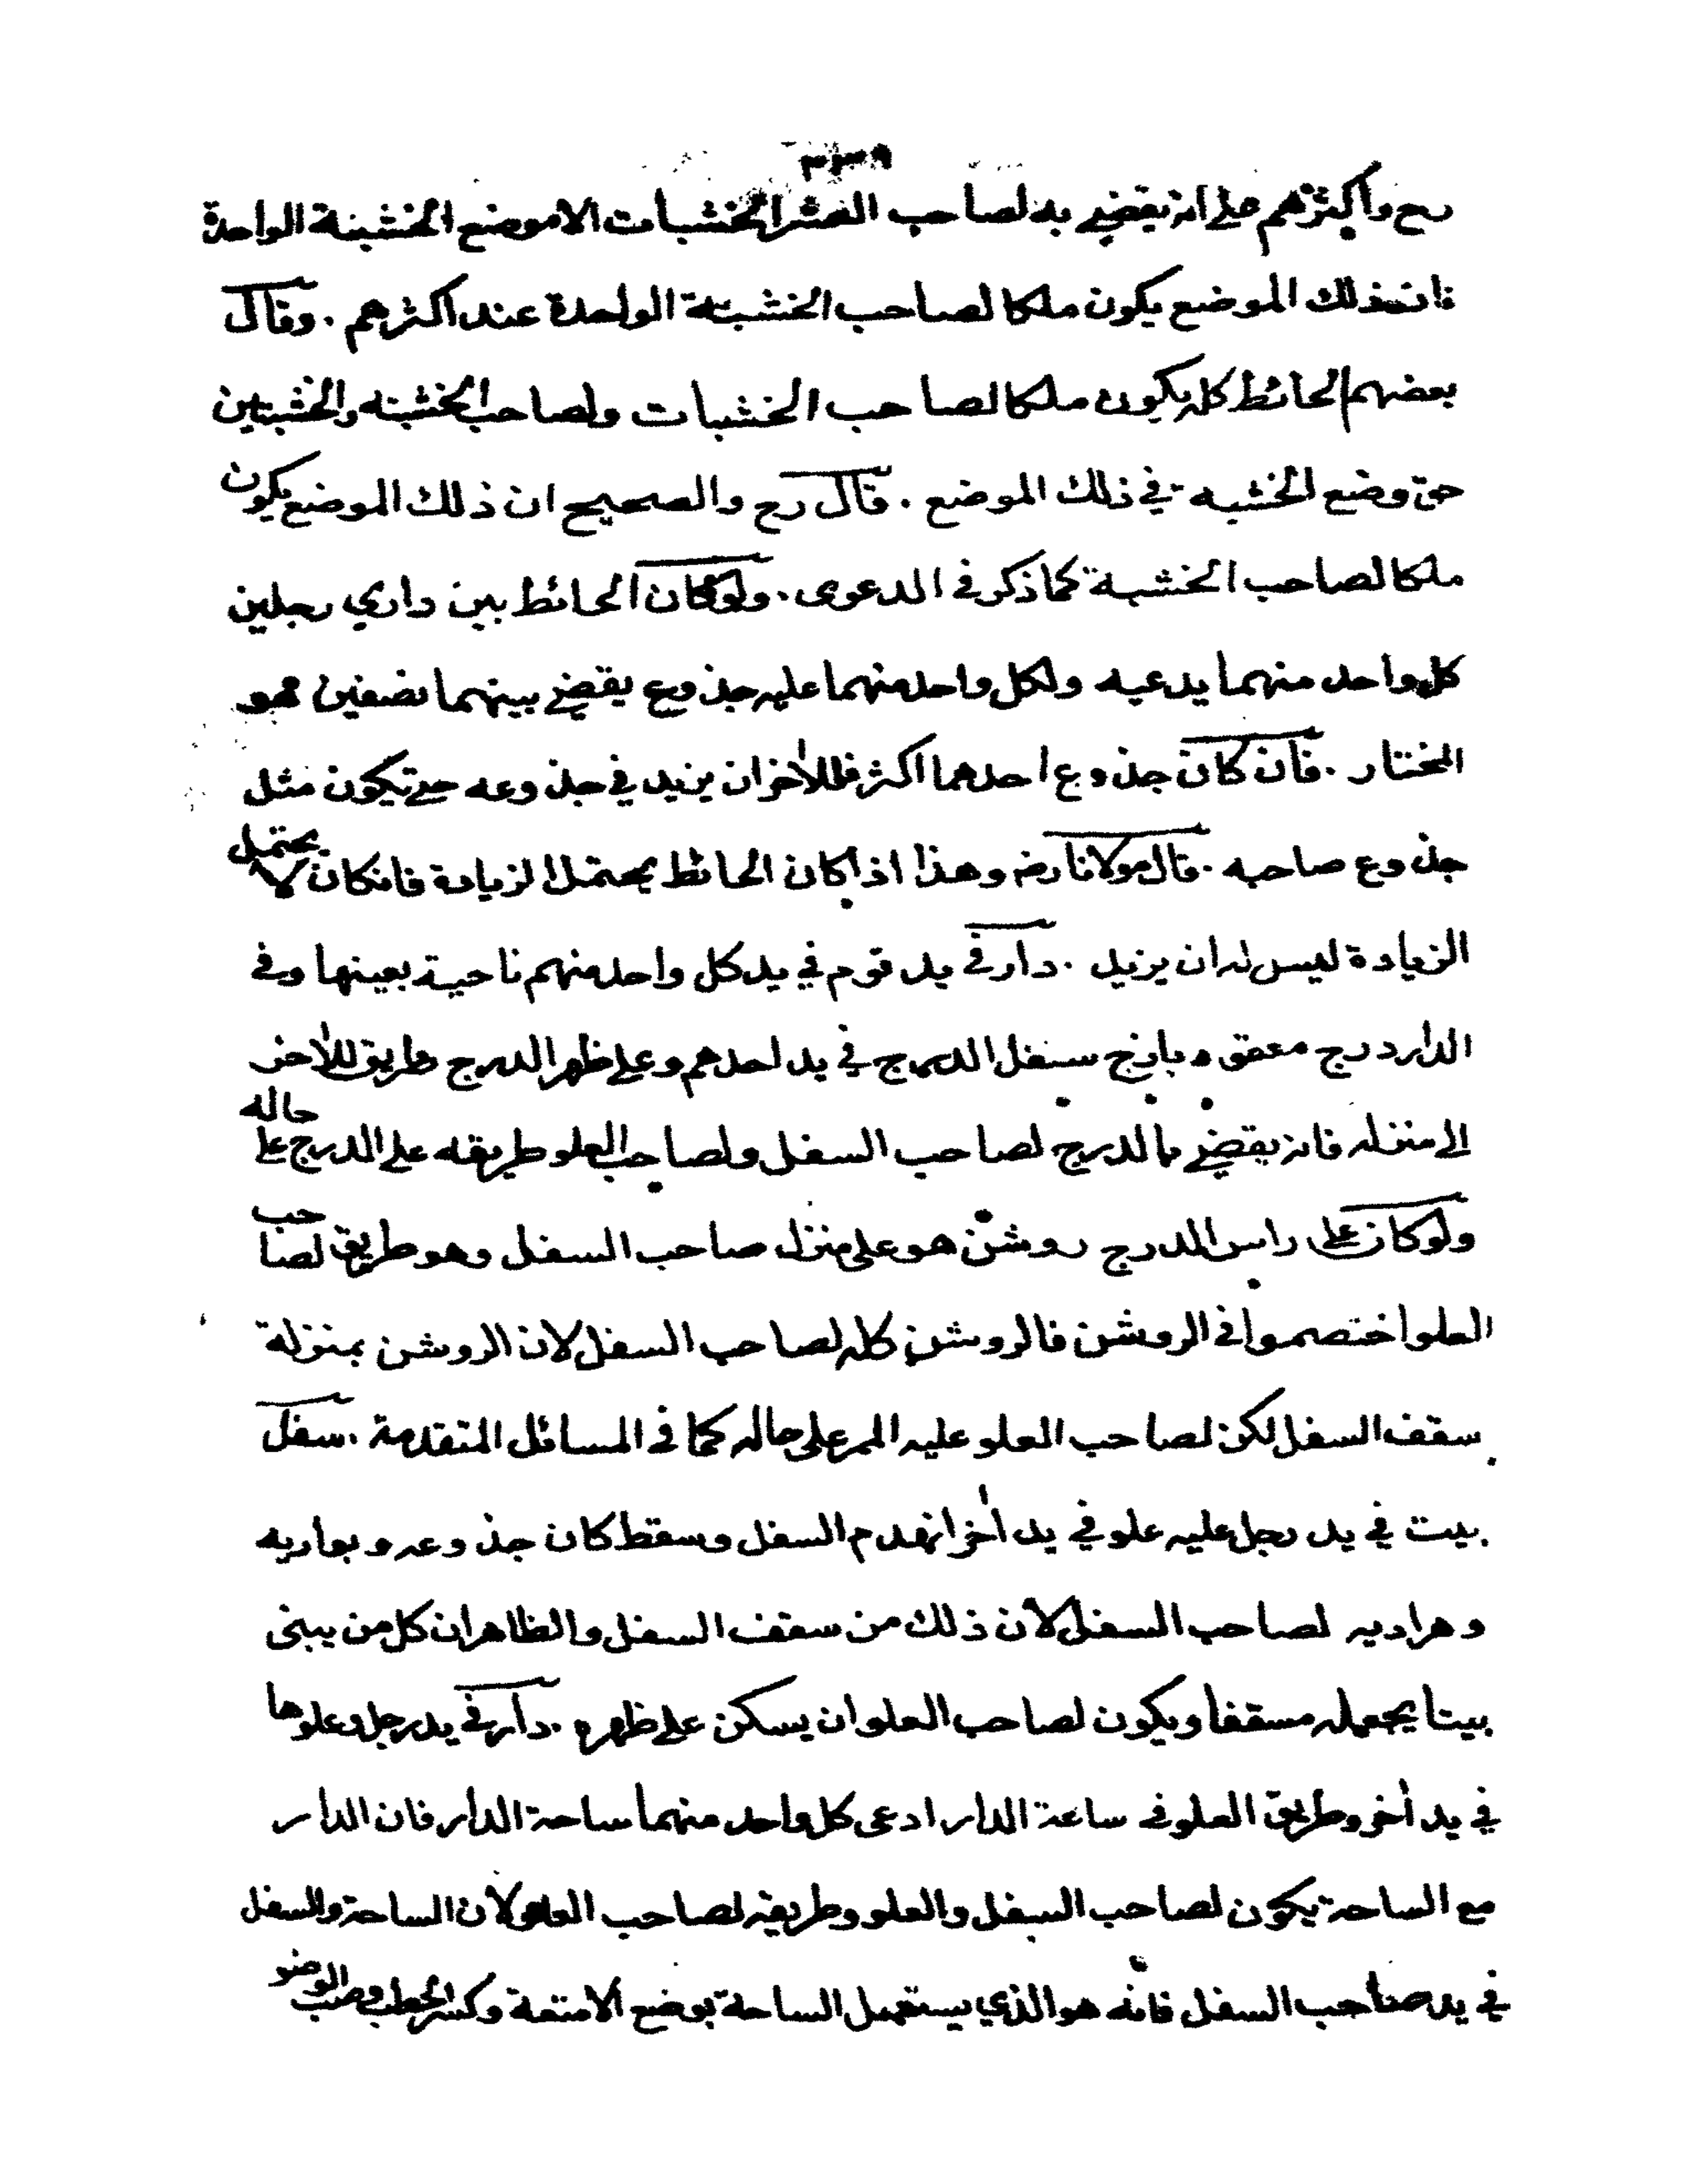 ٣٣٩
رح واكثرهم على انه يقضي به لصاحب العشر الخشبات الا موضع الخشبة الواحدة
فان ذلك الموضع يكون ملكا لصاحب الخشبة الواحدة عند اكثرهم . وقال
بعضهم الحائط كله يكون ملكا لصاحب الخشبات ولصاحب الخشبة والخشبتين
حق وضع الخشبه في ذلك الموضع . قال رح والصحيح ان ذلك الموضع يكون
ملكا لصاحب الخشبة كما ذكر في الدعوى . ولو كان الحائط بين داري رجلين
كل واحد منهما يدعيه ولكل واحد منهما عليه جذوع يقضي بينهما نصفين هو
المختار . فان كان جذوع احدهما اكثر فللاخر ان يزيد في جذوعه حتى تكون مثل
جذوع صاحبه . قال مولانا رضه وهذا اذا كان الحائط يحتمل الزيادة فان كان لا يحتمل
الزيادة ليس له ان يزيد . دار في يد قوم في يد كل واحد منهم ناحية بعينها وفي
الدار درج معقوده بازج سفل الدرج في يد احدهم وعلى ظهر الدرج طريق للاخر
الى منزله فانه يقضي بالدرج لصاحب السفل ولصاحب العلو طريقه على الدرج على حاله
ولو كان على راس الدرج روشن هو على منزل صاحب السفل وهو طريق لصاحب
العلو اختصموا في الروشن فالروشن كله لصاحب السفل لان الروشن بمنزلة
سقف السفل لكن لصاحب العلو عليه الممر على حاله كما في المسائل المتقدمة . سفل
بيت في يد رجل عليه علو في يد اخر انهدم السفل وسقط كان جذوعه وبواريه
وهراديه لصاحب السفل لان ذلك من سقف السفل والظاهر ان كل من يبنى
بيتا يجعله مسقفا ويكون لصاحب العلو ان يسكن على ظهره . دار في يد رجل وعلوها
في يد اخر وطريق العلو في ساحة الدار ادعى كل واحد منهما ساحة الدار فان الدار
مع الساحة يكون لصاحب السفل والعلو وطريقه لصاحب العلو لان الساحة والسفل
في يد صاحب السفل فانه هو الذي يستعمل الساحة بوضع الامتعة وكسر الحطب وصب الوضو